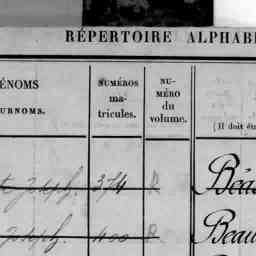 RÉPERTOIRE ALPHABE
ÉNOMS
URNOMS.
NUMÉROS
ma-
tricules.
NU-
MÉRO
du
volume.
(Il doit êt
Joseph. 374
Béa
Joseph. 400
Beau